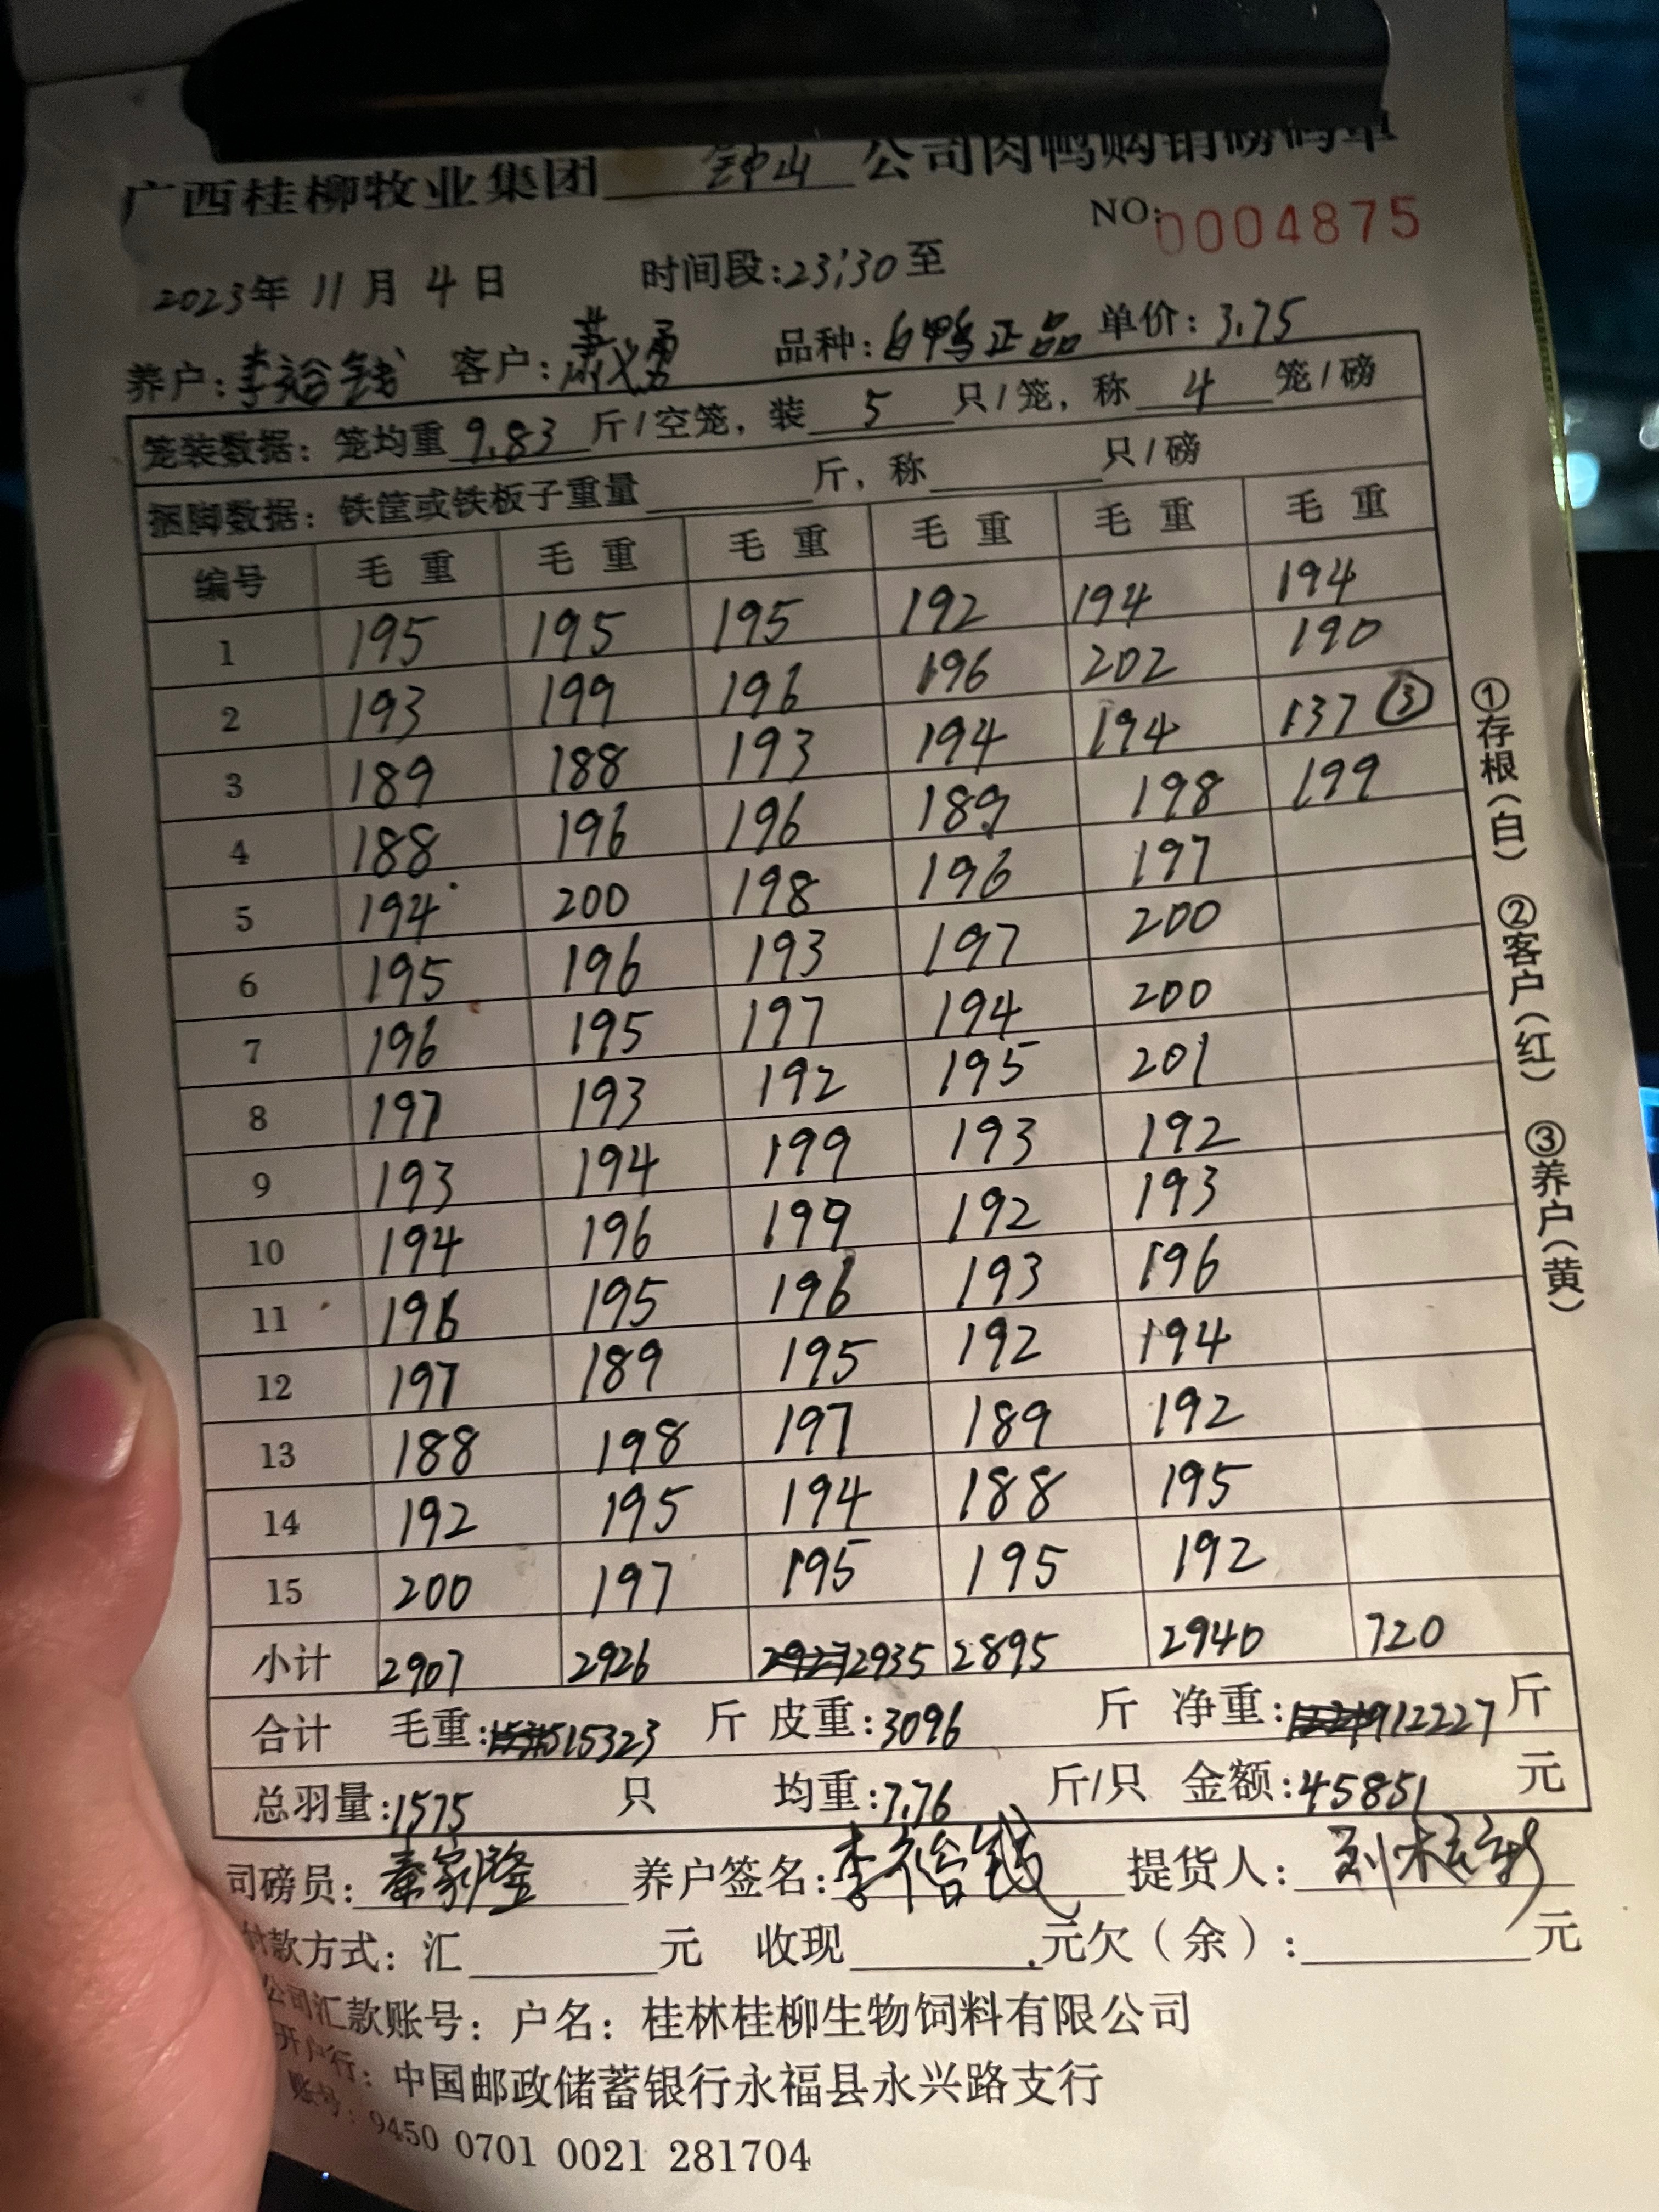 广西桂柳牧业集团 钟山 公司肉鸭购销磅码单
NO:0004875
2023年 11月 4日 时间段:23:30至
养户:李裕钱 客户:萧义勇 品种:白鸭正品 单价:3.75
笼装数据:笼均重 9.83 斤/空笼,装 5 只/笼,称 4 笼/磅
捆脚数据:铁筐或铁板子重量 斤,称 只/磅
编号 毛重 毛重 毛重 毛重 毛重 毛重
1 195 195 195 192 194 194
2 193 199 196 196 202 190
3 189 188 193 194 194 137 ③
4 188 196 196 189 198 199
5 194 200 198 196 197
6 195 196 193 197 200
7 196 195 197 194 200
8 197 193 192 195 201
9 193 194 199 193 192
10 194 196 199 192 193
11 196 195 196 193 196
12 197 189 195 192 194
13 188 198 197 189 192
14 192 195 194 188 195
15 200 197 195 195 192
小计 2907 2926 2935 2895 2940 720
合计 毛重:15323 斤 皮重:3096 斤 净重:12227 斤
总羽量:1575 只 均重:7.76 斤/只 金额:45851 元
司磅员:秦家隆 养户签名:李裕钱 提货人:刘
付款方式:汇 元 收现 元欠(余): 元
公司汇款账号:户名:桂林桂柳生物饲料有限公司
开户行:中国邮政储蓄银行永福县永兴路支行
账号:9450 0701 0021 281704
①存根(白) ②客户(红) ③养户(黄)